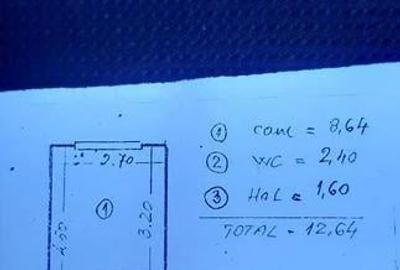 ① cam = 8,64
② WC = 2,40
③ HOL = 1,60
TOTAL - 12,64
2.70
①
3.20
4.00